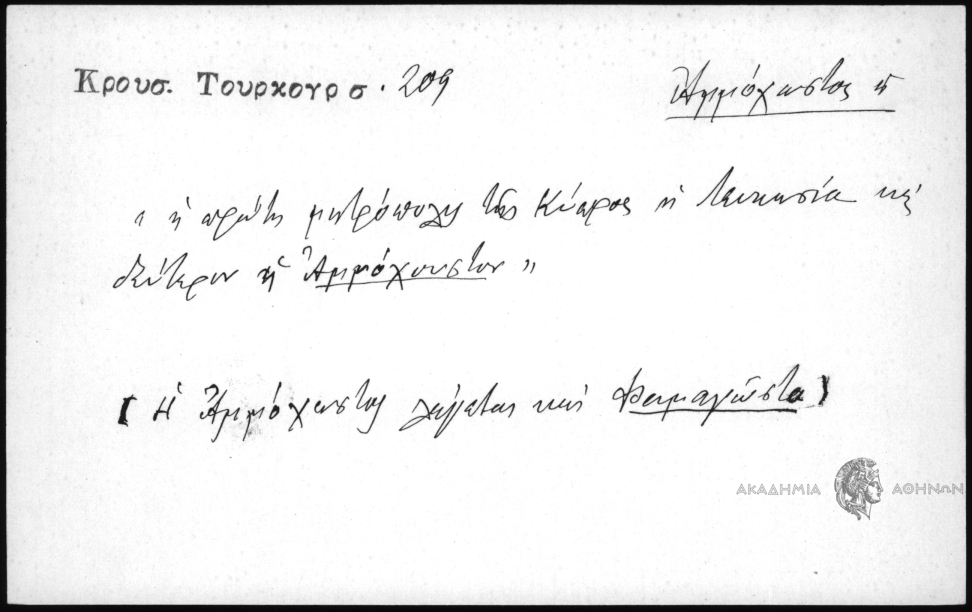 Κρουσ. Τουρκογρ σ. 209
Ἀμμόχωστος ἡ
" ἡ πρώτη μητρόπολις τῆς Κύπρος ἡ Λευκωσία καὶ
δεύτερον ἡ Ἀμμόχουστον "
[ ἡ Ἀμμόχωστος λέγεται καὶ Φαμαγῶστα ]
ΑΚΑΔΗΜΙΑ ΑΘΗΝΩΝ